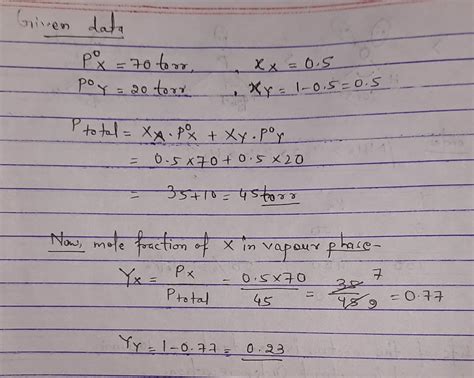 Given data
P°x = 70 torr, , xx = 0.5
P°y = 20 torr , xy = 1-0.5 = 0.5
Ptotal = XA. P°x + xy. P°y
= 0.5 x 70 + 0.5 x 20
= 35 + 10 = 45 torr
Now, mole fraction of x in vapour phase-
Yx = Px / Ptotal = 0.5 x 70 / 45 = 35 7 / 45 9 = 0.77
Yy = 1 - 0.77 = 0.23